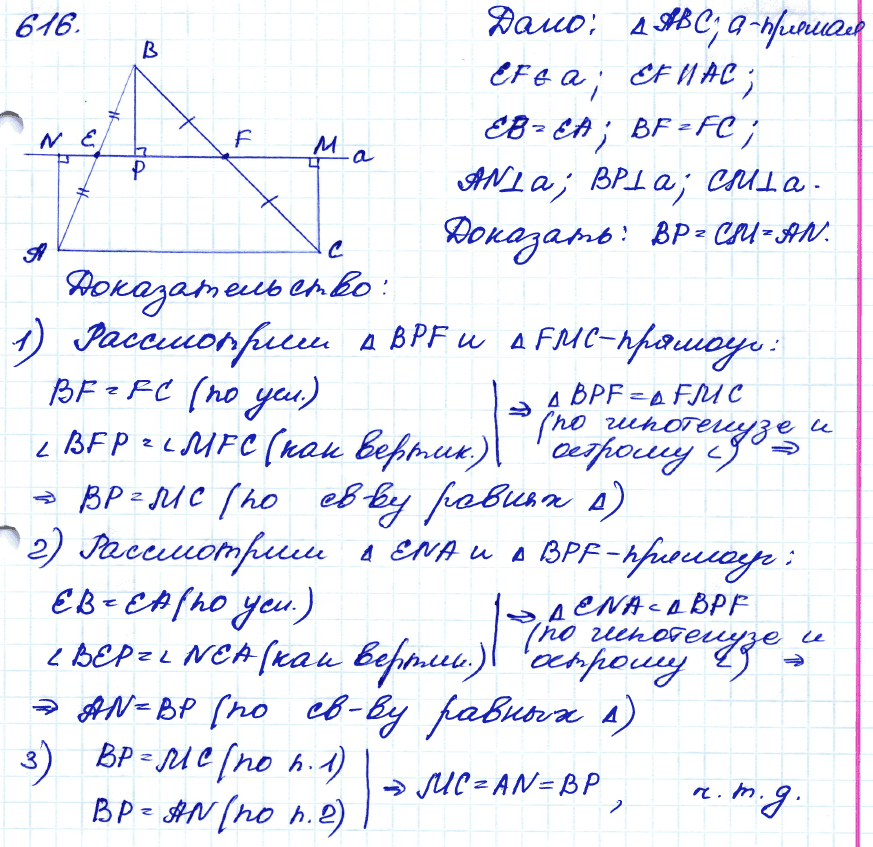 616.
Дано: △ABC; a-прямая
EF ∈ a; EF ∥ AC;
EB = EA; BF = FC;
AN⊥a; BP⊥a; CM⊥a.
Доказать: BP = CM = AN.
B
N E P F M a
A C
Доказательство:
1) Рассмотрим △BPF и △FMC-прямоуг:
BF = FC (по усл.)
∠BFP = ∠MFC (как вертик.)
⇒ △BPF = △FMC
(по гипотенузе и
острому ∠) ⇒
⇒ BP = MC (по св-ву равных △)
2) Рассмотрим △ENA и △BPF-прямоуг:
EB = EA (по усл.)
∠BEP = ∠NEA (как вертик.)
⇒ △ENA = △BPF
(по гипотенузе и
острому ∠) ⇒
⇒ AN = BP (по св-ву равных △)
3) BP = MC (по п.1)
BP = AN (по п.2)
⇒ MC = AN = BP, ч.т.д.